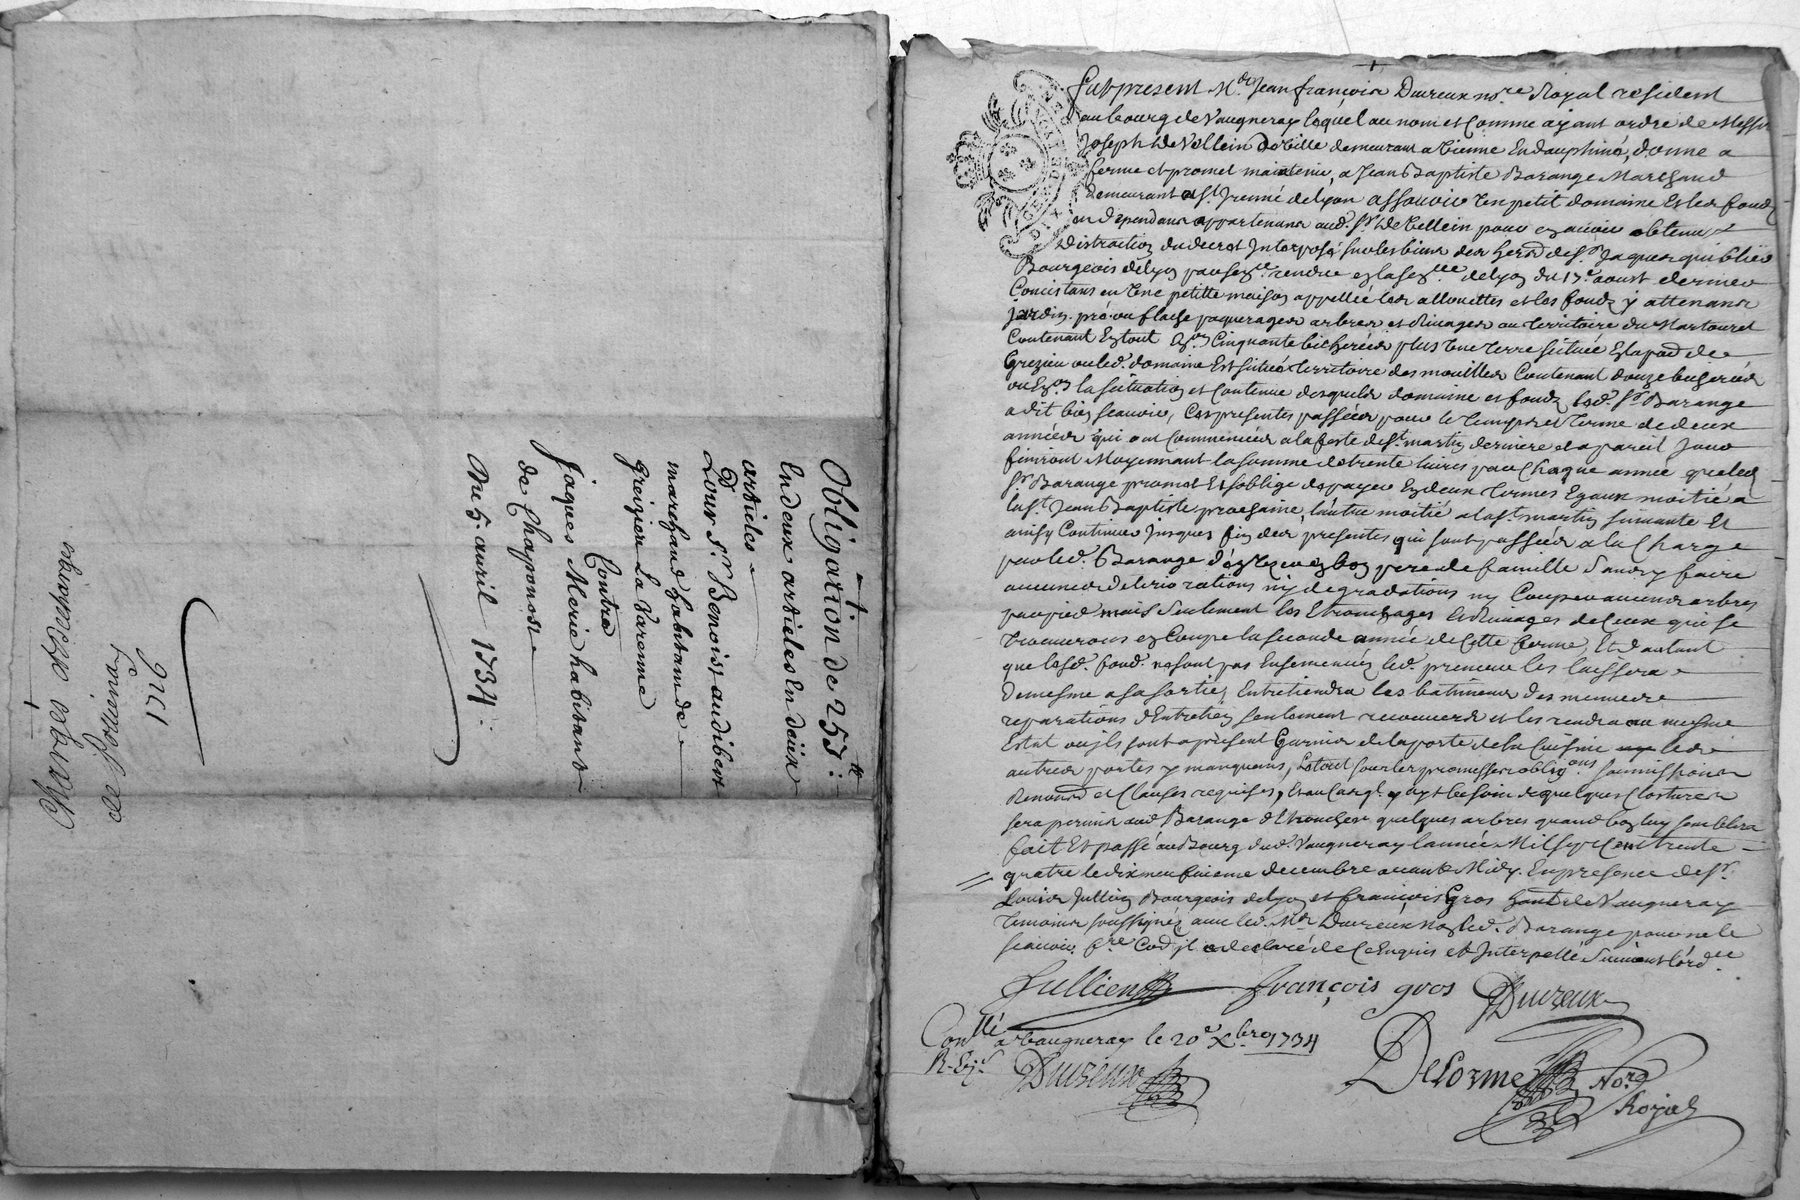 Obligation de 253 ℔:
En deux articles En deux
articles -
Pour Sr. Benoist audibert
marchand habitant de
Greizieu La Varenne
Contre
Jaques Merie habitant
de Chaponost
Du 5 avril 1734.
1726
Fut present Me. Jean françois Dureux nore. Royal resident
au bourg de Vaugneray lequel au nom et Comme ayant ordre de Messire
Joseph de Vellein demeurant a Vienne En dauphiné, donne a
ferme et promet maintenir, a Jean Baptiste Barange Marchand
demeurant a St. Irenné de Lyon assavoir Un petit domaine Et les fondz
en dependans appartenans aud. Sr. de Vellein pour en avoir obtenu
distraction du decret Interposé sur les biens des hers. de Sr. Jaques
Bourgeois de Lyon par sence. rendue en la sencée. de Lyon du 17e aoust dernier
Concistans en Une petitte maison appellée les allouettes et les fondz y attenans
jardin, pré ou flache paquerages arbres et Vinages au territoire du Martouret
Contenant En tout Enon. Cinquante bicherées plus Une terre située En la parse. de
Grezieu ou led. domaine Est situé territoire des mouilles Contenant douze bicherées
ou Enon. la scituation et Contenue desquels domaine et fondz led. Sr. Barange
a dit bien sçavoir, Ces presentes passées pour le temps et terme de deux
années qui ont Commencées a la feste de St. martin derniere et a pareil jour
finiront Moyennant la somme de trente livres par Chaque année que led.
Sr. Barange promet Et s'oblige de payer En deux termes Egaux moitié a
la St. Jean Baptiste prochaine, l'autre moitié a la St. martin suivante Et
ainsy Continuer Jusques fin des presentes qui sont passées a la Charge
par led. Barange d'en user en bon pere de famille sans y faire
aucunes deteriorations ny degradations ny Couper aucuns arbres
par pied mais seulement les Etronchages Et Vinages de Ceux qui se
trouverons en Coupe la seconde année de Cette ferme, Et d'autant
que lesd. fonds. ne sont pas Ensemencés led. preneur les laissera
de mesme a sa sortie, Entretiendra les batimens des menues
reparations d'Entretien seulement et les rendra au mesme
Estat ou ils sont apresent Garnis de la porte de la Cuisine les
autres portes y manquans, Le tout sous les promesses obligons. soumissions
Renonons. et Clauses requises, Et au Cas qu'il y ayt besoin de quelques Clostures
sera permis aud. Barange d'Etroncher quelques arbres quand bon luy semblera
fait Et passé au Bourg dud. Vaugneray l'année Mil sept Cent trente
quatre le dix neufvieme decembre avant Midy. En presence de Sr.
Louis Jullien Bourgeois de Lyon et françois Gros hant. de Vaugneray
temoins soussignés avec led. Me. Dureux non led. Barange pour ne le
sçavoir fre. Com̃e il a declaré de Ce Enquis et Interpellé Suivant l'ordce
Jullien françois gros Dureux
Conllé a Vaugneray le 20e Xbre 1734
R. Dureux
Delorme Nore.
Royal